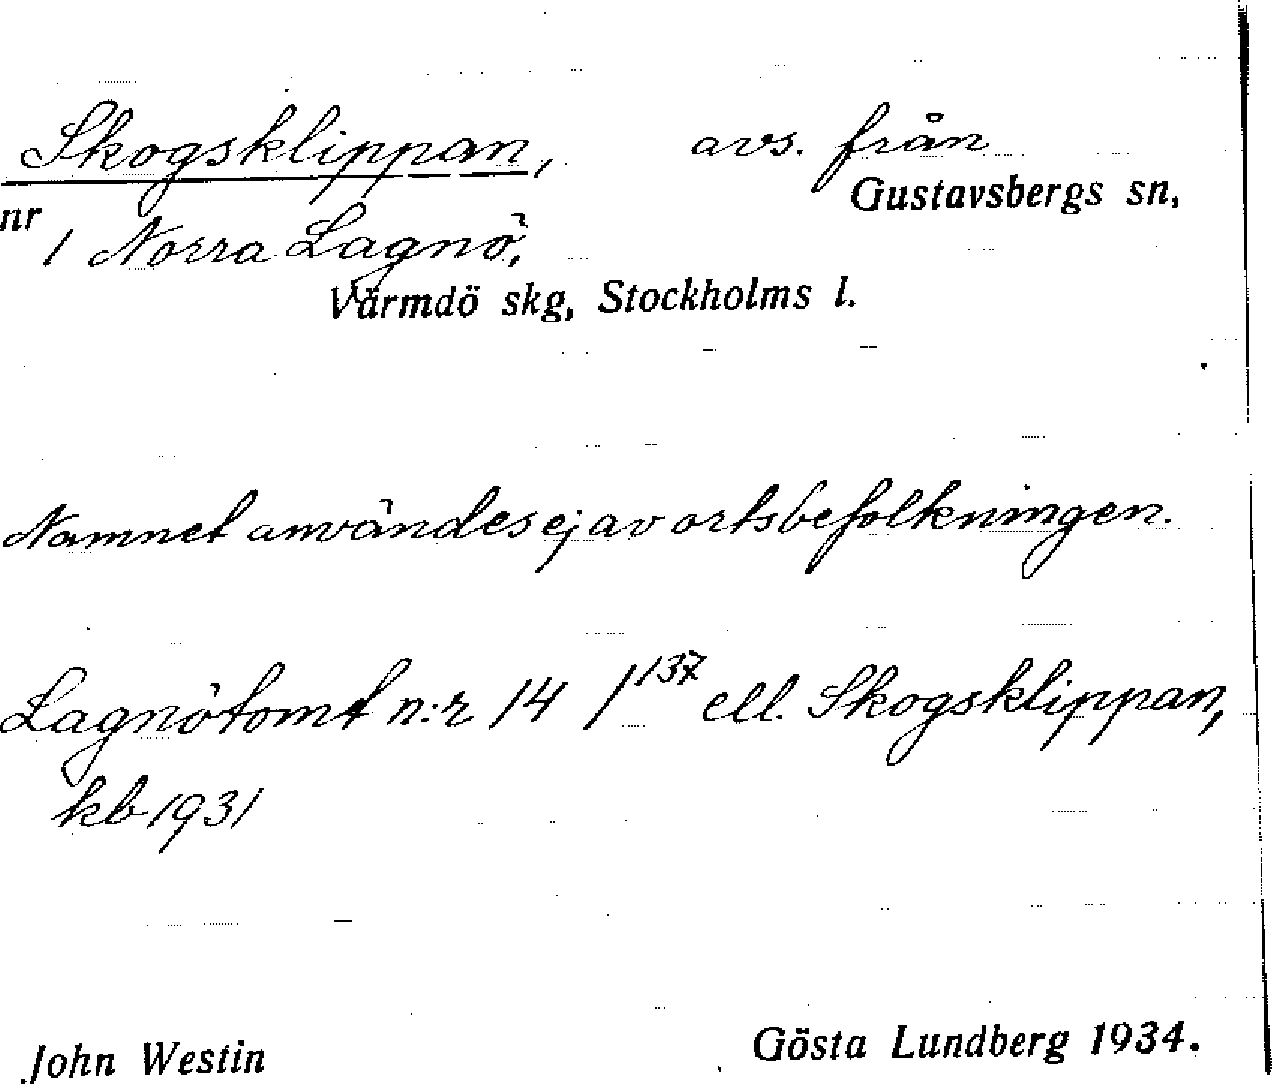 Skogsklippan, avs. från
Gustavsbergs sn,
nr 1 Norra Lagnö,
Värmdö skg, Stockholms l.
Namnet användes ej av ortsbefolkningen.
Lagnötomt n:r 14 1¹³⁷ ell. Skogsklippan,
kb 1931
John Westin Gösta Lundberg 1934.